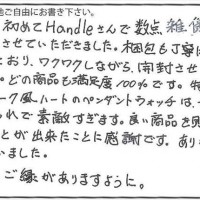 ご自由にお書き下さい。
初めてHandleさんで数点雑貨
させていただきました。梱包も丁寧
おり、ワクワクしながら、開封させ
。どの商品も満足度100%です。特
ーク風ハートのペンダントウォッチは、
れで素敵すぎます。良い商品を見
とが出来たことに感謝です。あり
いました。
ご縁がありますように。